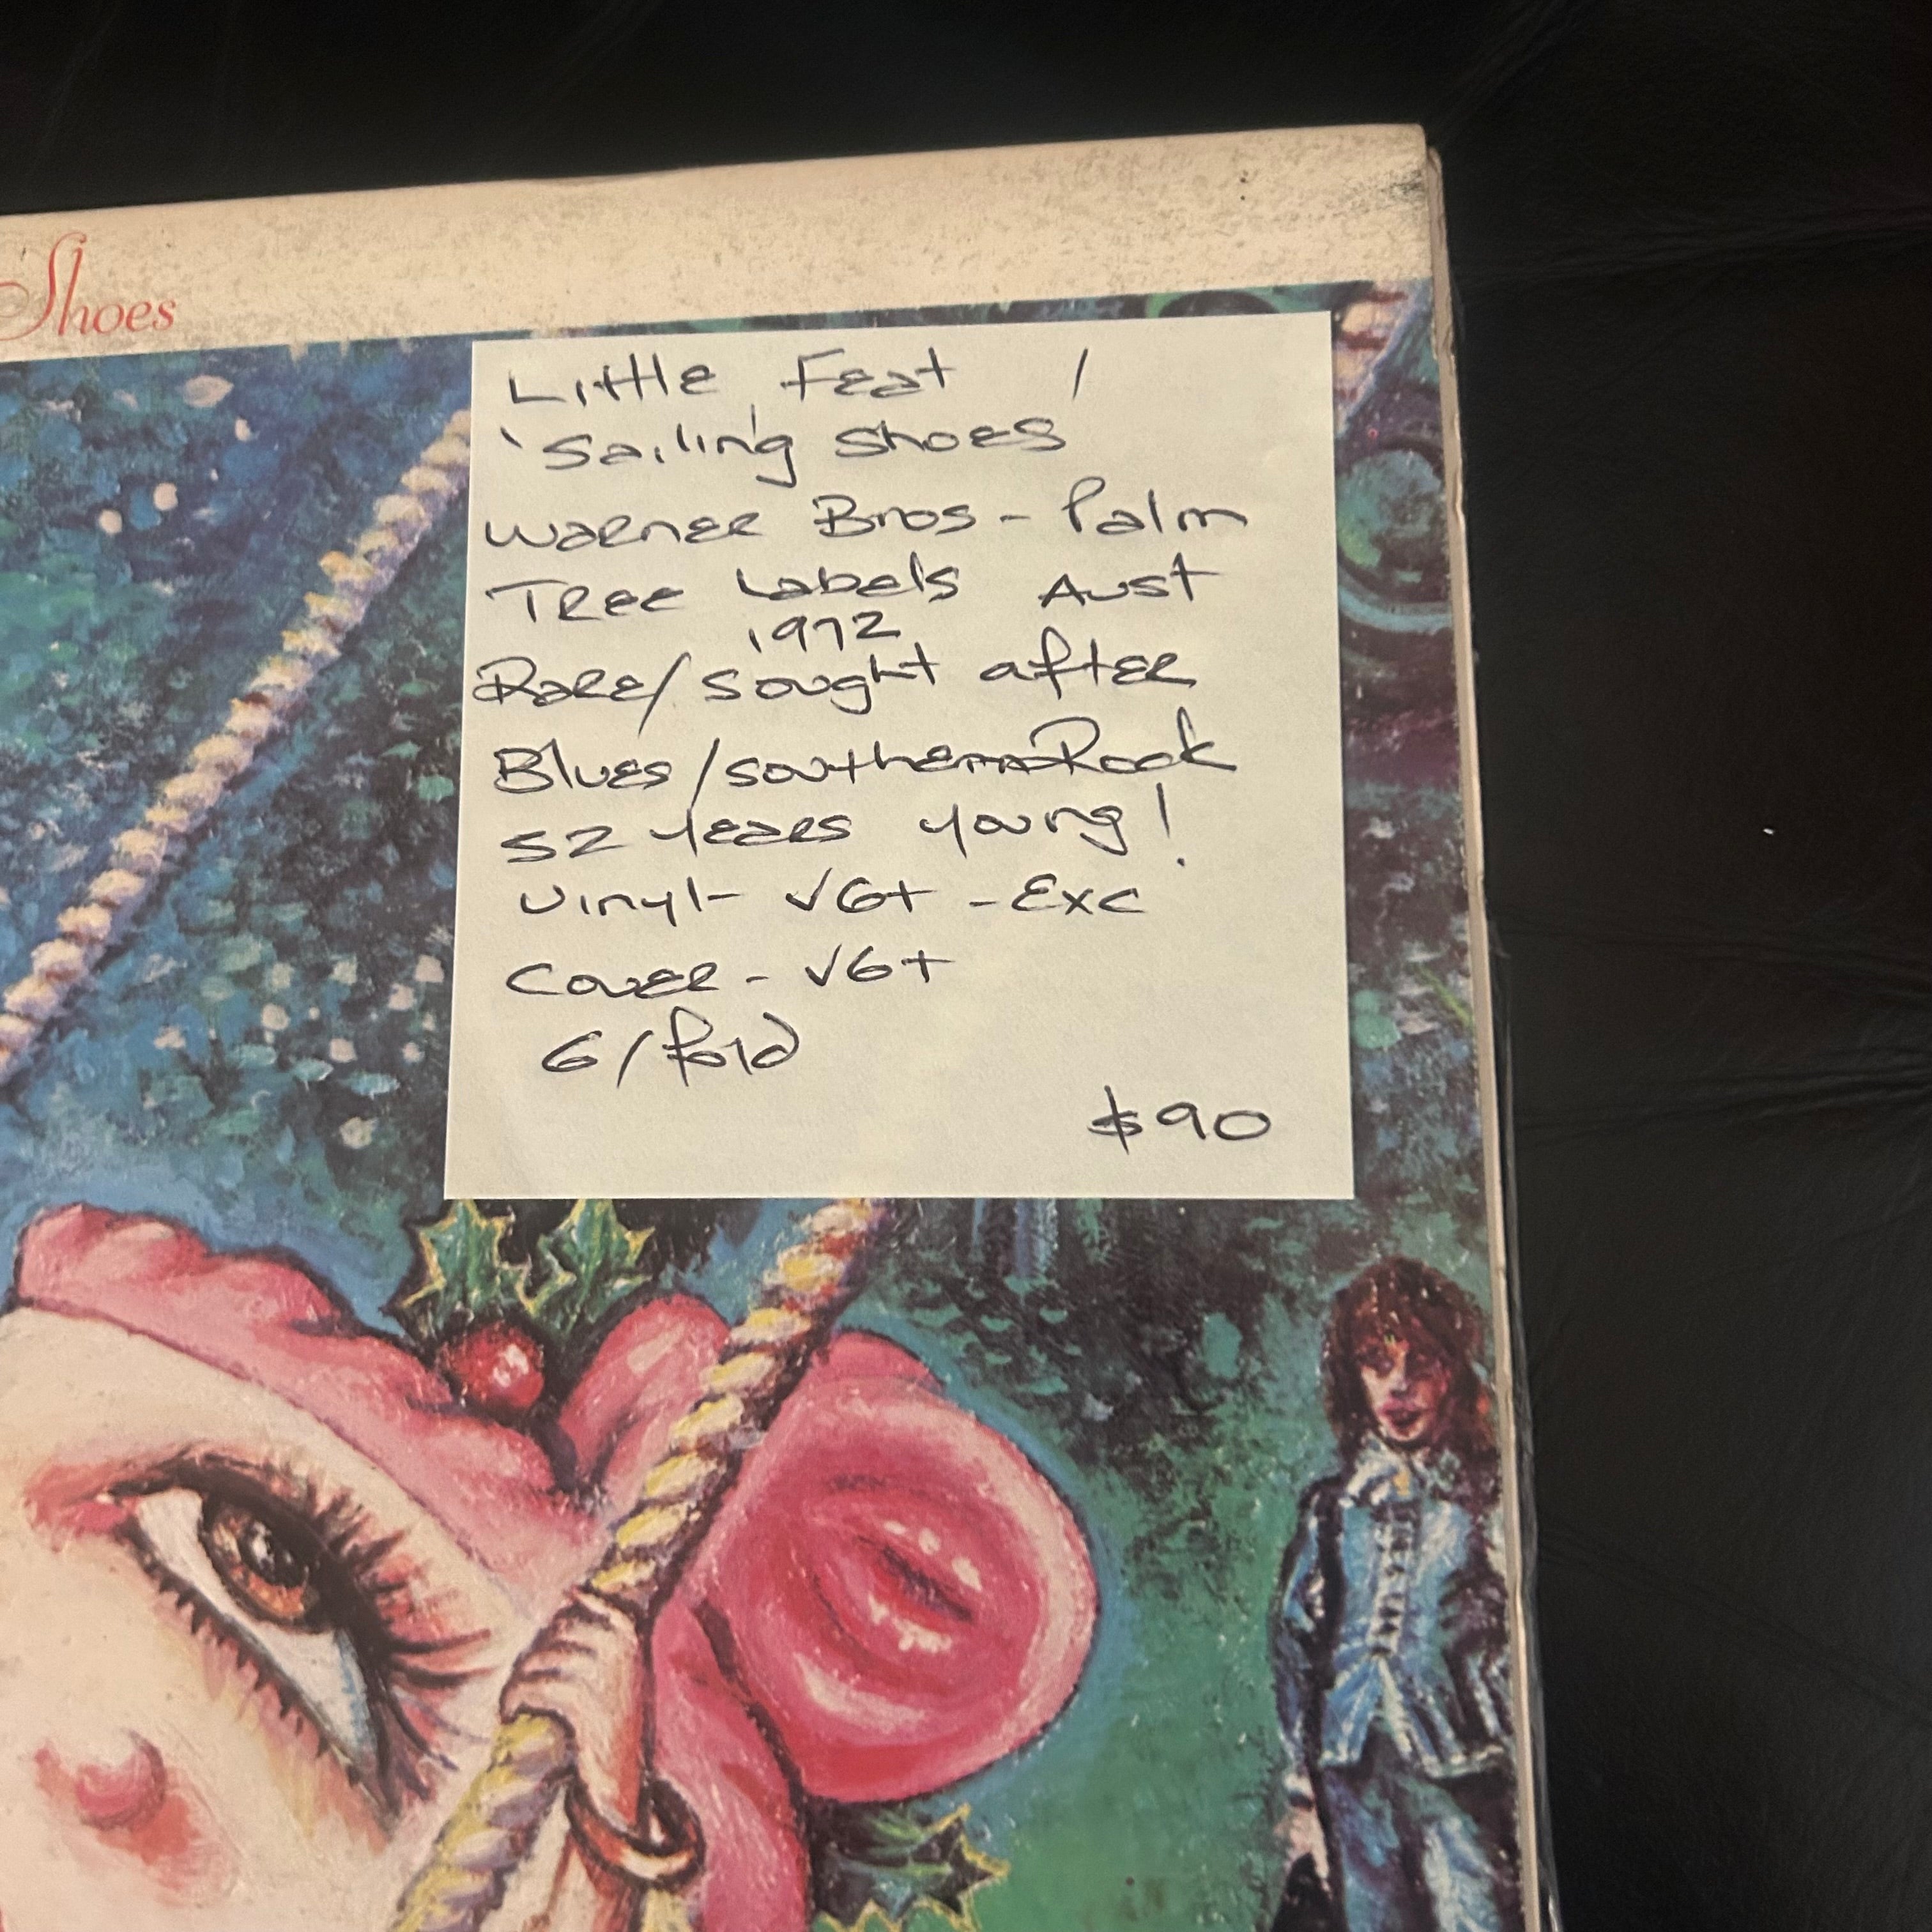 Shoes
Little Feat /
'Sailing Shoes'
Warner Bros - Palm
Tree Labels Aust
1972
Rare/ Sought after
Blues/Southern Rock
52 years young!
Vinyl- VG+ - Exc
Cover - VG+
G/fold
$90